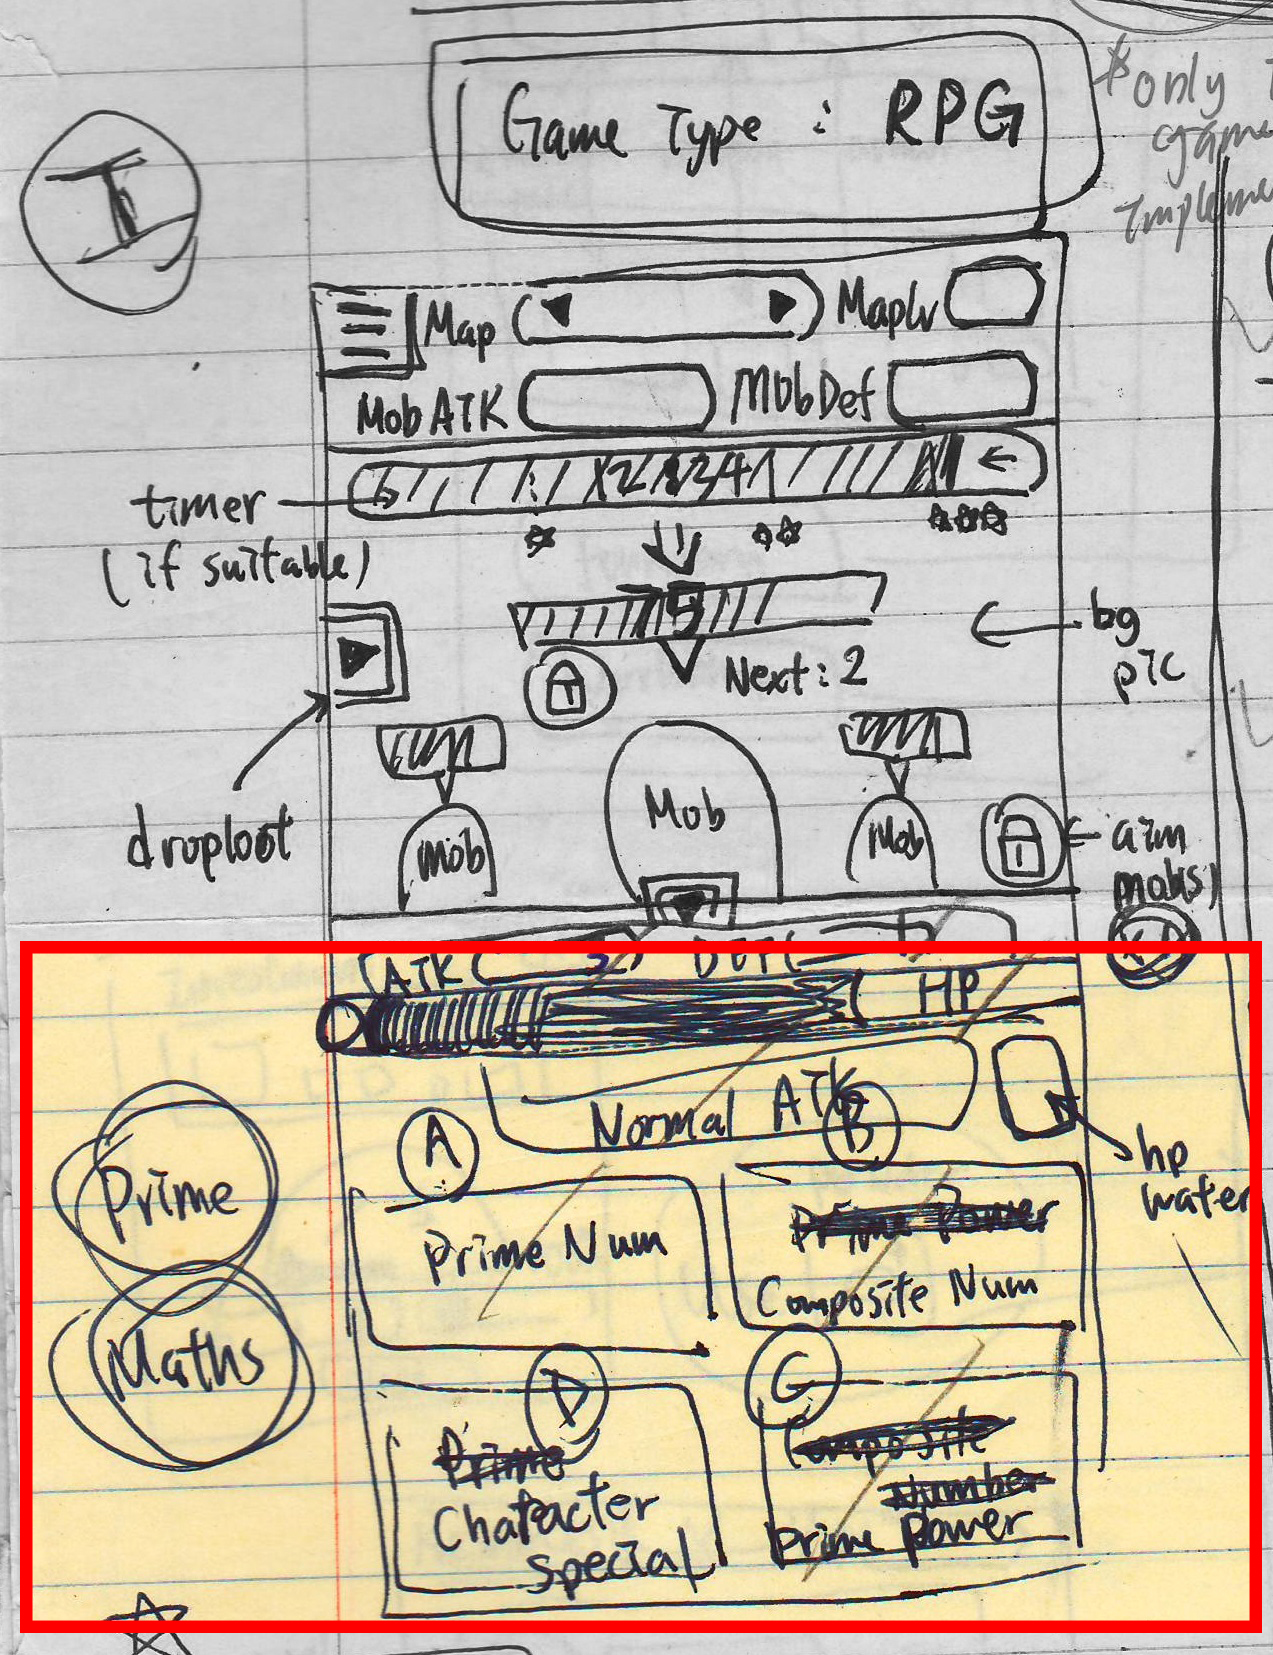 I
Game Type : RPG
only
game
Impleme
Map
Maplv
Mob ATK
Mob Def
timer
(if suitable)
bg
pic
Next : 2
droploot
Mob
Mob
Mob
aim
mobs)
ATK
HP
Normal ATK
hp
water
Prime
Maths
A
Prime Num
B
Prime Power
Composite Num
D
Prime
Character
Special
C
Composite
Number
Prime Power